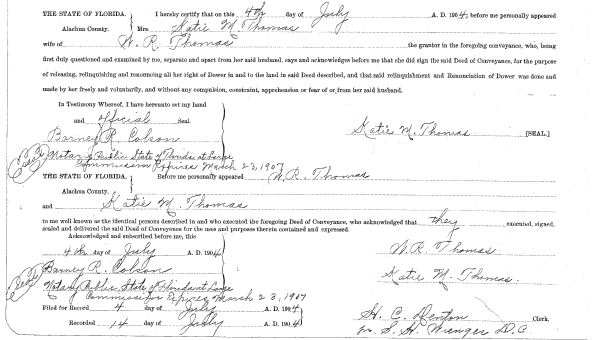 THE STATE OF FLORIDA. I hereby certify that on this 4th day of July A. D. 1904, before me personally appeared
Alachua County. Mrs. Katie M. Thomas
wife of W. R. Thomas the grantor in the foregoing conveyance, who, being
first duly questioned and examined by me, separate and apart from her said husband, says and acknowledges before me that she did sign the said Deed of Conveyance, for the purpose
of releasing, relinquishing and renouncing all her right of Dower in and to the land in said Deed described, and that said relinquishment and Renunciation of Dower was done and
made by her freely and voluntarily, and without any compulsion, constraint, apprehension or fear of or from her said husband.
In Testimony Whereof, I have hereunto set my hand
and official Seal.
Barney R. Colson
Katie M. Thomas [SEAL.]
Seal
Notary Public State of Florida at Large
Commission Expires March 23, 1907
THE STATE OF FLORIDA. Before me personally appeared W. R. Thomas
Alachua County.
and Katie M. Thomas
to me well known as the identical persons described in and who executed the foregoing Deed of Conveyance, who acknowledged that they executed, signed,
sealed and delivered the said Deed of Conveyance for the uses and purposes therein contained and expressed.
Acknowledged and subscribed before me, this
4th day of July A. D. 1904
W. R. Thomas
Barney R. Colson
Katie M. Thomas.
Seal
Notary Public State of Florida at Large
Commission Expires March 23, 1907
Filed for Record 4 day of July A. D. 1904
H. C. Denton Clerk.
Recorded 14 day of July A. D. 1904
S. H. Wienges D. C.